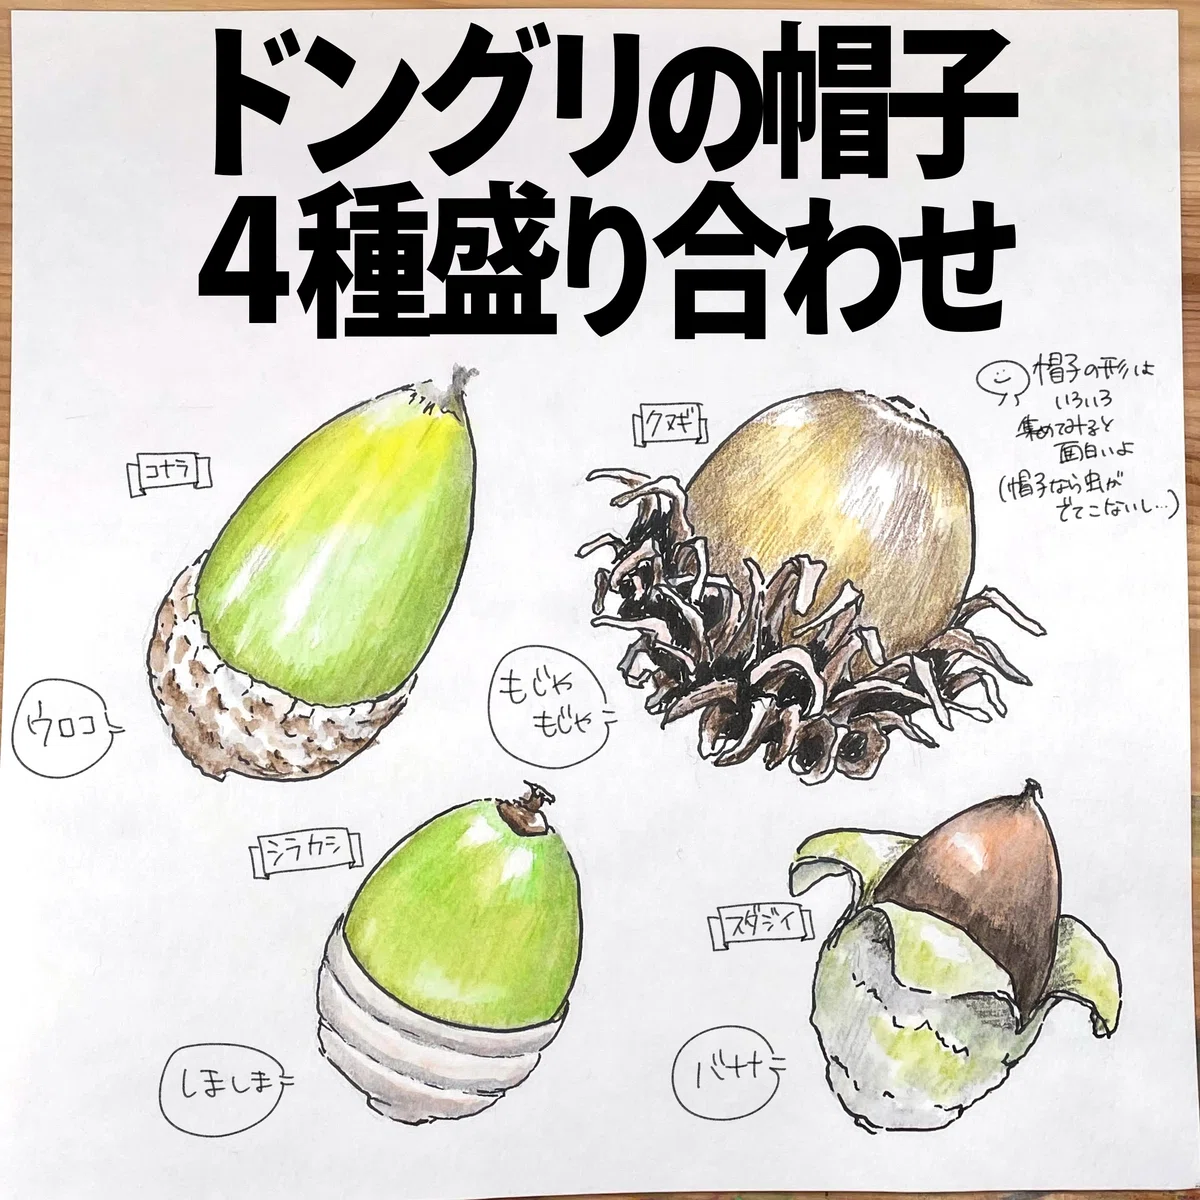 ドングリの帽子
4種盛り合わせ
帽子の形は
いろいろ
集めてみると
面白いよ
(帽子なら虫が
でてこないし…)
コナラ
クヌギ
ウロコ
もじゃ
もじゃ
シラカシ
スダジイ
しましま
バナナ